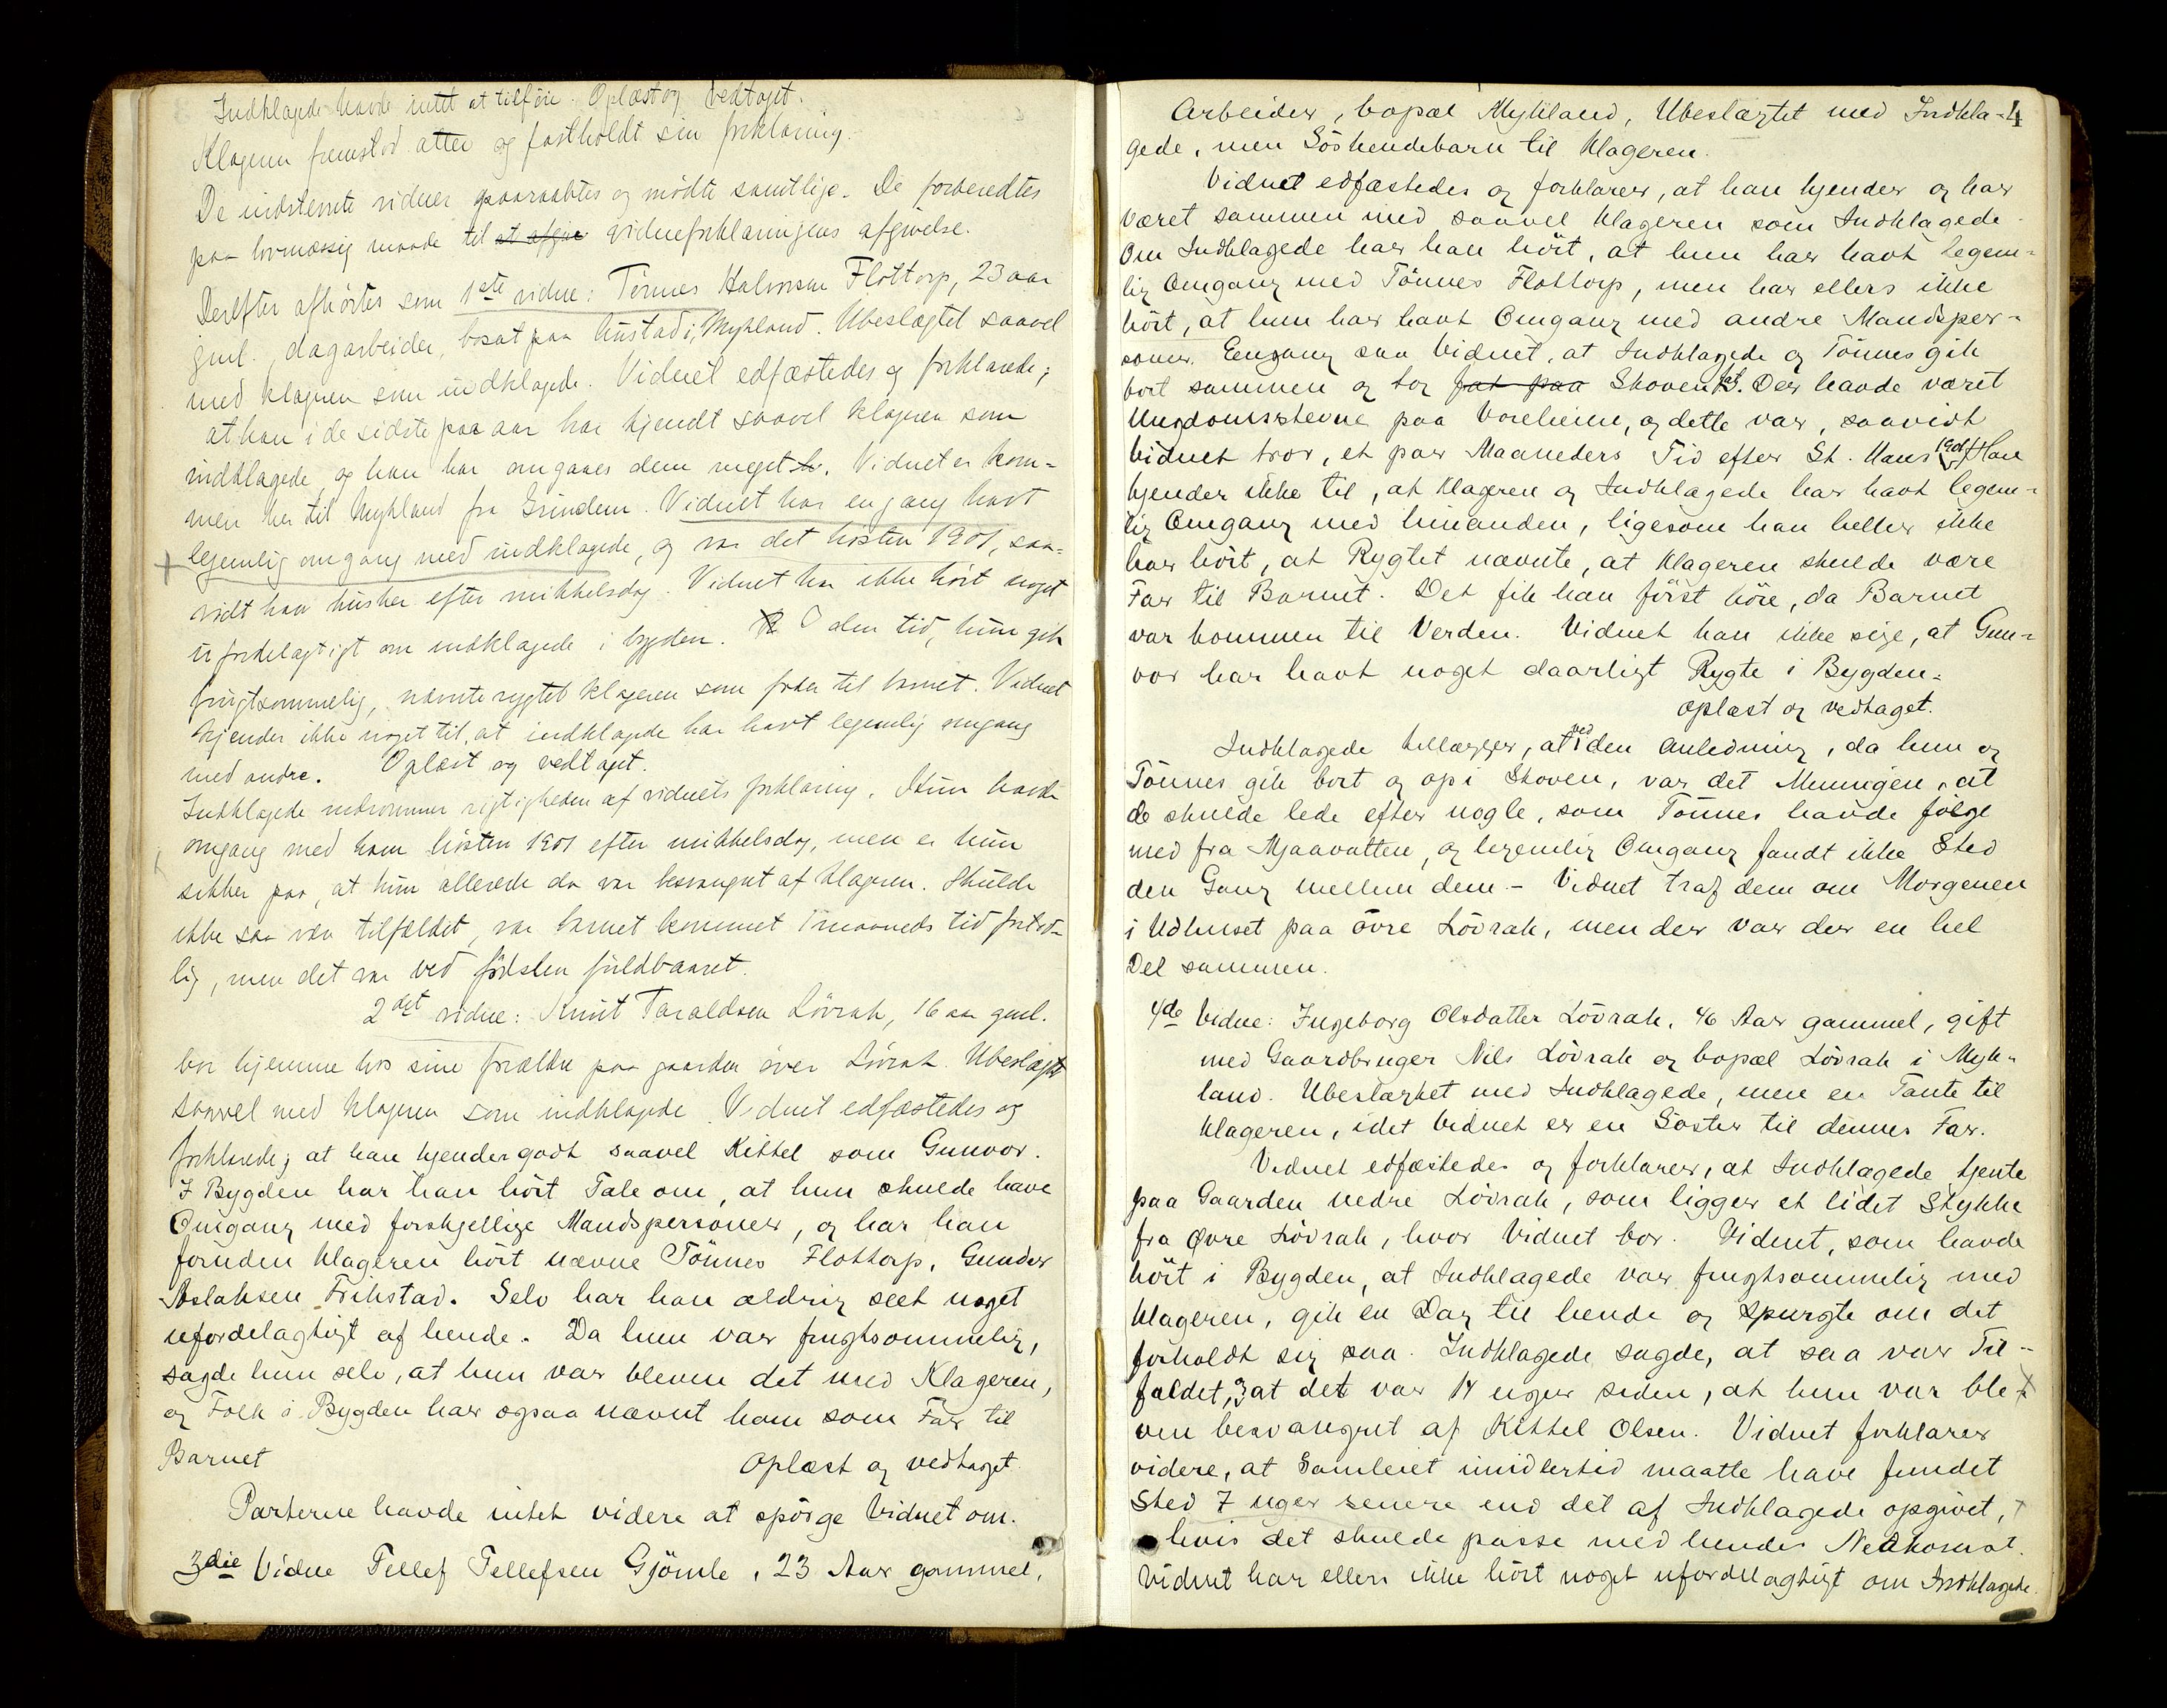 Indklagede havde intet at tilföie. Oplæst og vedtaget.
Klageren fremstod atter og fastholdt sin forklaring.
De indstevnte vidner paaraabtes og mödte samtlige. De forberedtes
paa lovmæssig maade til at afgive vidneforklaringens afgivelse.
Derefter afhörtes som 1ste vidne: Tönnes Halvorsen Flottorp, 23 aar
gml. dagarbeider, bosat paa Hustad i Mykland. Ubeslægtet saavel
med klageren som indklagede. Vidnet edfæstedes og forklarede;
at han i de sidste par aar har kjendt saavel klageren som
indklagede, og han har omgaaes dem meget. Vidnet er kom-
men her til Mykland fra Grindem. Vidnet har engang havt
+ legemlig omgang med indklagede, og var det hösten 1901, saa-
vidt han husker efter mikkelsdag. Vidnet har ikke hört noget
ufordelagtigt om indklagede i bygden. I den tid, hun gik
frugtsommelig, nævnte rygtet klageren som fader til barnet. Vidnet
kjender ikke noget til, at indklagede har havt legemlig omgang
med andre. Oplæst og vedtaget.
Indklagede indrömmer rigtigheden af vidnets forklaring. Hun havde
omgang med ham hösten 1901 efter mikkelsdag, men er hun
sikker paa, at hun allerede da var besvangret af klageren. Skulde
ikke saa være tilfældet, var barnet kommet 1 maaneds tid fortid-
lig, men det var ved födslen fuldbaaret.
2det vidne: Knut Taraldsen Lövrak, 16 aar gml.
bor hjemme hos sine forældre paa gaarden över Lövrak. Ubeslægtet
saavel med klageren som indklagede. Vidnet edfæstedes og
forklarede; at han kjender godt saavel Kittel som Gunvor.
I Bygden har han hört Tale om, at hun skulde have
Omgang med forskjellige Mandspersoner, og har han
foruden Klageren hört nævne Tönnes Flottorp, Gunder
Aslaksen Frikstad. Selv har han aldrig seet noget
ufordelagtigt af hende. Da hun var frugtsommelig,
sagde hun selv, at hun var bleven det med Klageren,
og Folk i Bygden har ogsaa nævnt ham som Far til
Barnet Oplæst og vedtaget.
Parterne havde intet videre at spörge Vidnet om.
3die Vidne Tellef Tellefsen Gjömle, 23 Aar gammel,
4
Arbeider, bopæl Mykland, Ubeslægtet med Indkla-
gede, men Söskendebarn til Klageren.
Vidnet edfæstedes og forklarer, at han kjender og har
været sammen med saavel Klageren som Indklagede.
Om Indklagede har han hört, at hun har havt legem-
lig Omgang med Tönnes Flottorp, men har ellers ikke
hört, at hun har havt Omgang med andre Mandsper-
soner. Engang saa Vidnet, at Indklagede og Tönnes gik
bort sammen og tog fat paa Skoven. Der havde været
Ungdomsstevne paa Voreheim, og dette var, saavidt
Vidnet tror, et par Maaneders Tid efter St. Hans 1901. Han
kjender ikke til, at Klageren og Indklagede har havt legem-
lig Omgang med hinanden, ligesom han heller ikke
har hört, at Rygtet nævnte, at Klageren skulde være
Far til Barnet. Det fik han först höre, da Barnet
var kommen til Verden. Vidnet kan ikke sige, at Gun-
vor har havt noget daarligt Rygte i Bygden.
Oplæst og vedtaget.
Indklagede tillægger, at ved den Anledning, da hun og
Tönnes gik bort og op i Skoven, var det Meningen, at
de skulde lede efter nogle, som Tönnes havde fölge
med fra Mjaavatten, og legemlig Omgang fandt ikke Sted
den Gang mellem dem. – Vidnet traf dem om Morgenen
i Udhuset paa övre Lövrak, men der var der en hel
Del sammen.
4de Vidne: Ingeborg Olsdatter Lövrak, 46 Aar gammel, gift
med Gaardbruger Nils Lövrak og bopæl Lövrak i Myk-
land. Ubeslægtet med Indklagede, men en Tante til
Klageren, idet Vidnet er en Söster til dennes Far.
Vidnet edfæstedes og forklarer, at Indklagede tjente
paa Gaarden nedre Lövrak, som ligger et lidet Stykke
fra Øvre Lövrak, hvor Vidnet bor. Vidnet, som havde
hört i Bygden, at Indklagede var frugtsommelig med
Klageren, gik en Dag til hende og spurgte om det
forholdt sig saa. Indklagede sagde, at saa var Til-
fældet, at det var 14 uger siden, at hun var ble-
ven besvangret af Kittel Olsen. Vidnet forklarer
videre, at Samleiet imidlertid maatte have fundet
Sted 7 uger senere end det af Indklagede opgivet, +
hvis det skulde passe med hendes Nedkomst.
Vidnet har ellers ikke hört noget ufordelagtigt om Indklagede.